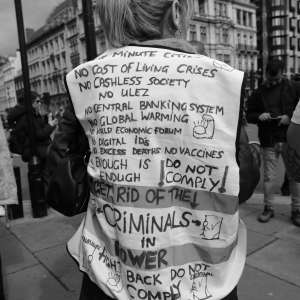 MINUTE CITIES
NO COST OF LIVING CRISES
NO CASHLESS SOCIETY
NO ULEZ
NO CENTRAL BANKING SYSTEM
NO GLOBAL WARMING
WORLD ECONOMIC FORUM
DIGITAL IDs
EXCESS DEATHS NO VACCINES
ENOUGH IS ENOUGH
! DO NOT COMPLY!
GET RID OF THE
CRIMINALS
IN
POWER
FIGHT
BACK DO NOT
COMPLY